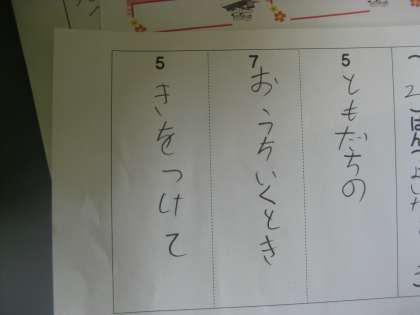 5
ともだちの
7
おうちいくとき
5
きをつけて